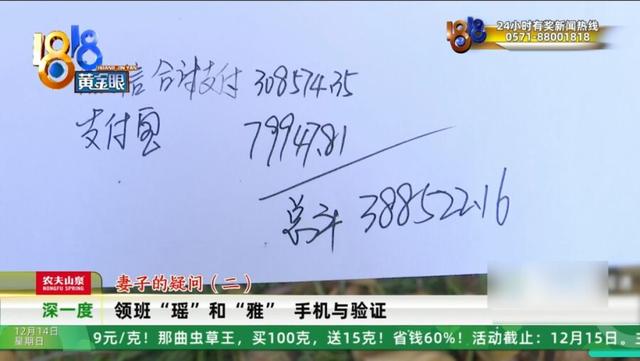 1818
黄金眼
1818
24小时有奖新闻热线
0571-88001818
信合计支付 308574.35
支付宝 79947.81
总计 388522.16
农夫山泉
NONGFU SPRING
妻子的疑问（二）
深一度
领班“瑶”和“雅” 手机与验证
12月14日
星期日
9元/克！那曲虫草王，买100克，送15克！省钱60%！活动截止：12月15日。